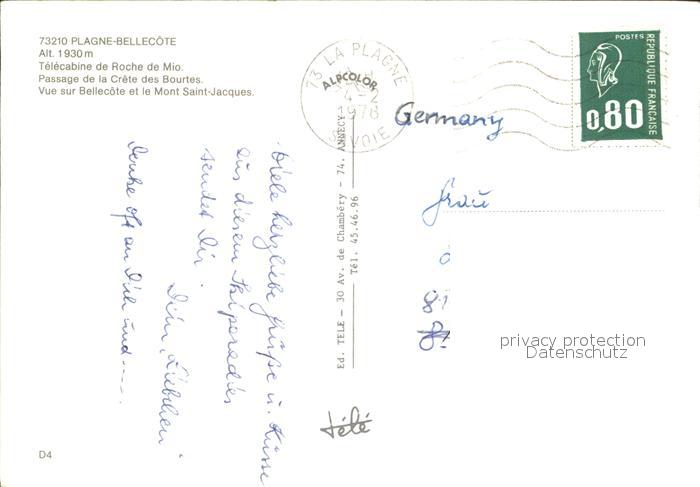 73210 PLAGNE-BELLECÔTE
Alt. 1930 m
Télécabine de Roche de Mio.
Passage de la Crête des Bourtes.
Vue sur Bellecôte et le Mont Saint-Jacques.
73 LA PLAGNE
ALPCOLOR
1978
SAVOIE
POSTES
RÉPUBLIQUE FRANÇAISE
0,80
Germany
Frau
viele herzliebe Grüße u. Küsse
aus diesem Skiparadies
sendet Dir
Dein "Liebchen"
Denke oft an Dich und----.
Ed. TELE - 30 Av. de Chambéry - 74. ANNECY -
Tél. 45.46.96
télé
privacy protection
Datenschutz
D4